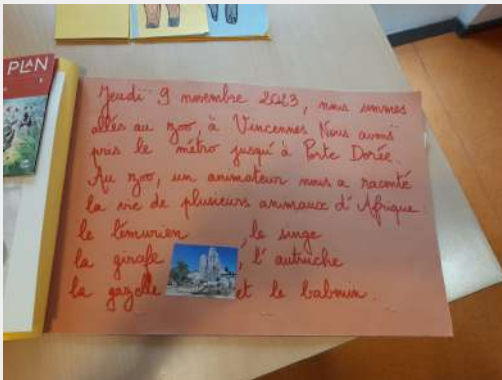 PLAN
Jeudi 9 novembre 2023, nous sommes
allés au zoo, à Vincennes Nous avons
pris le métro jusqu'à Porte Dorée.
Au zoo, un animateur nous a raconté
la vie de plusieurs animaux d'Afrique
le lémurien, le singe
la girafe, l'autruche
la gazelle et le babouin.